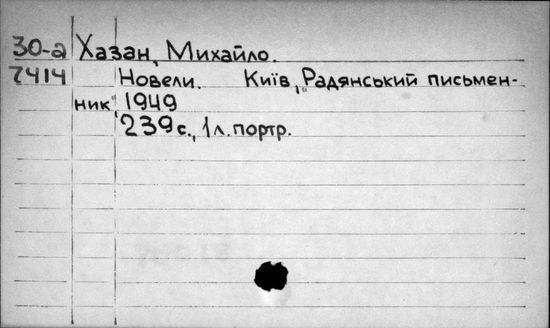 30-а Хазан, Михайло.
7414 Новели. Київ, „Радянський письмен-
ник" 1949
239 с., 1 л. портр.